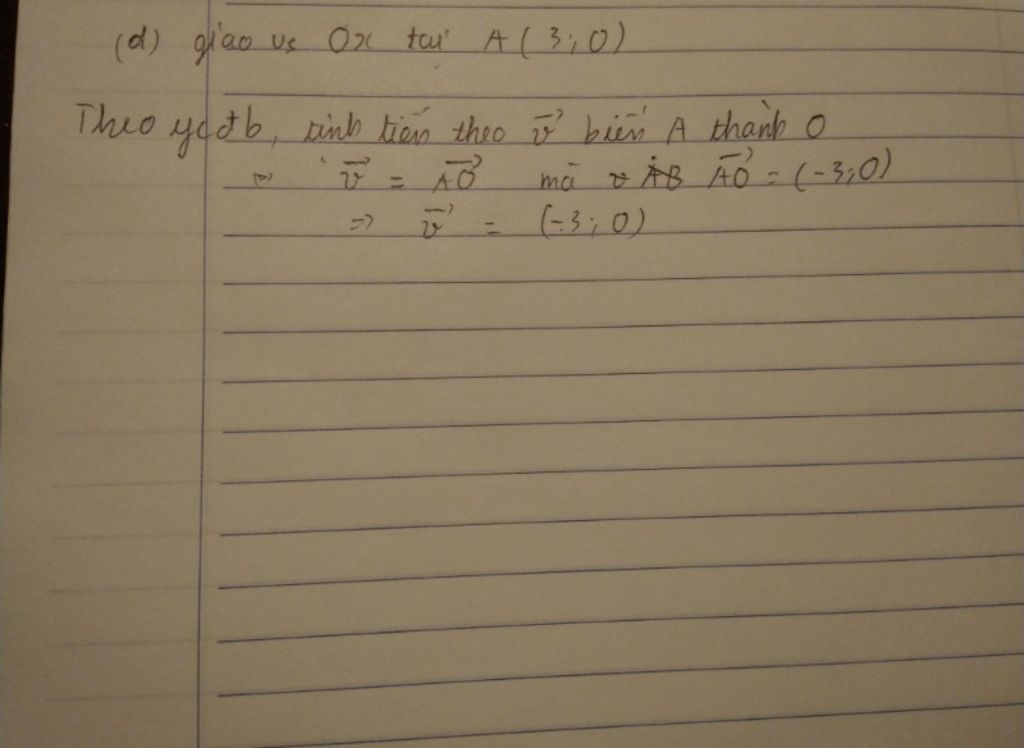 (d) giao vs Ox tại A(3;0)
Theo ycđb, tịnh tiến theo v⃗ biến A thành O
=> v⃗ = AO⃗ mà AO⃗ = (-3;0)
=> v⃗ = (-3;0)